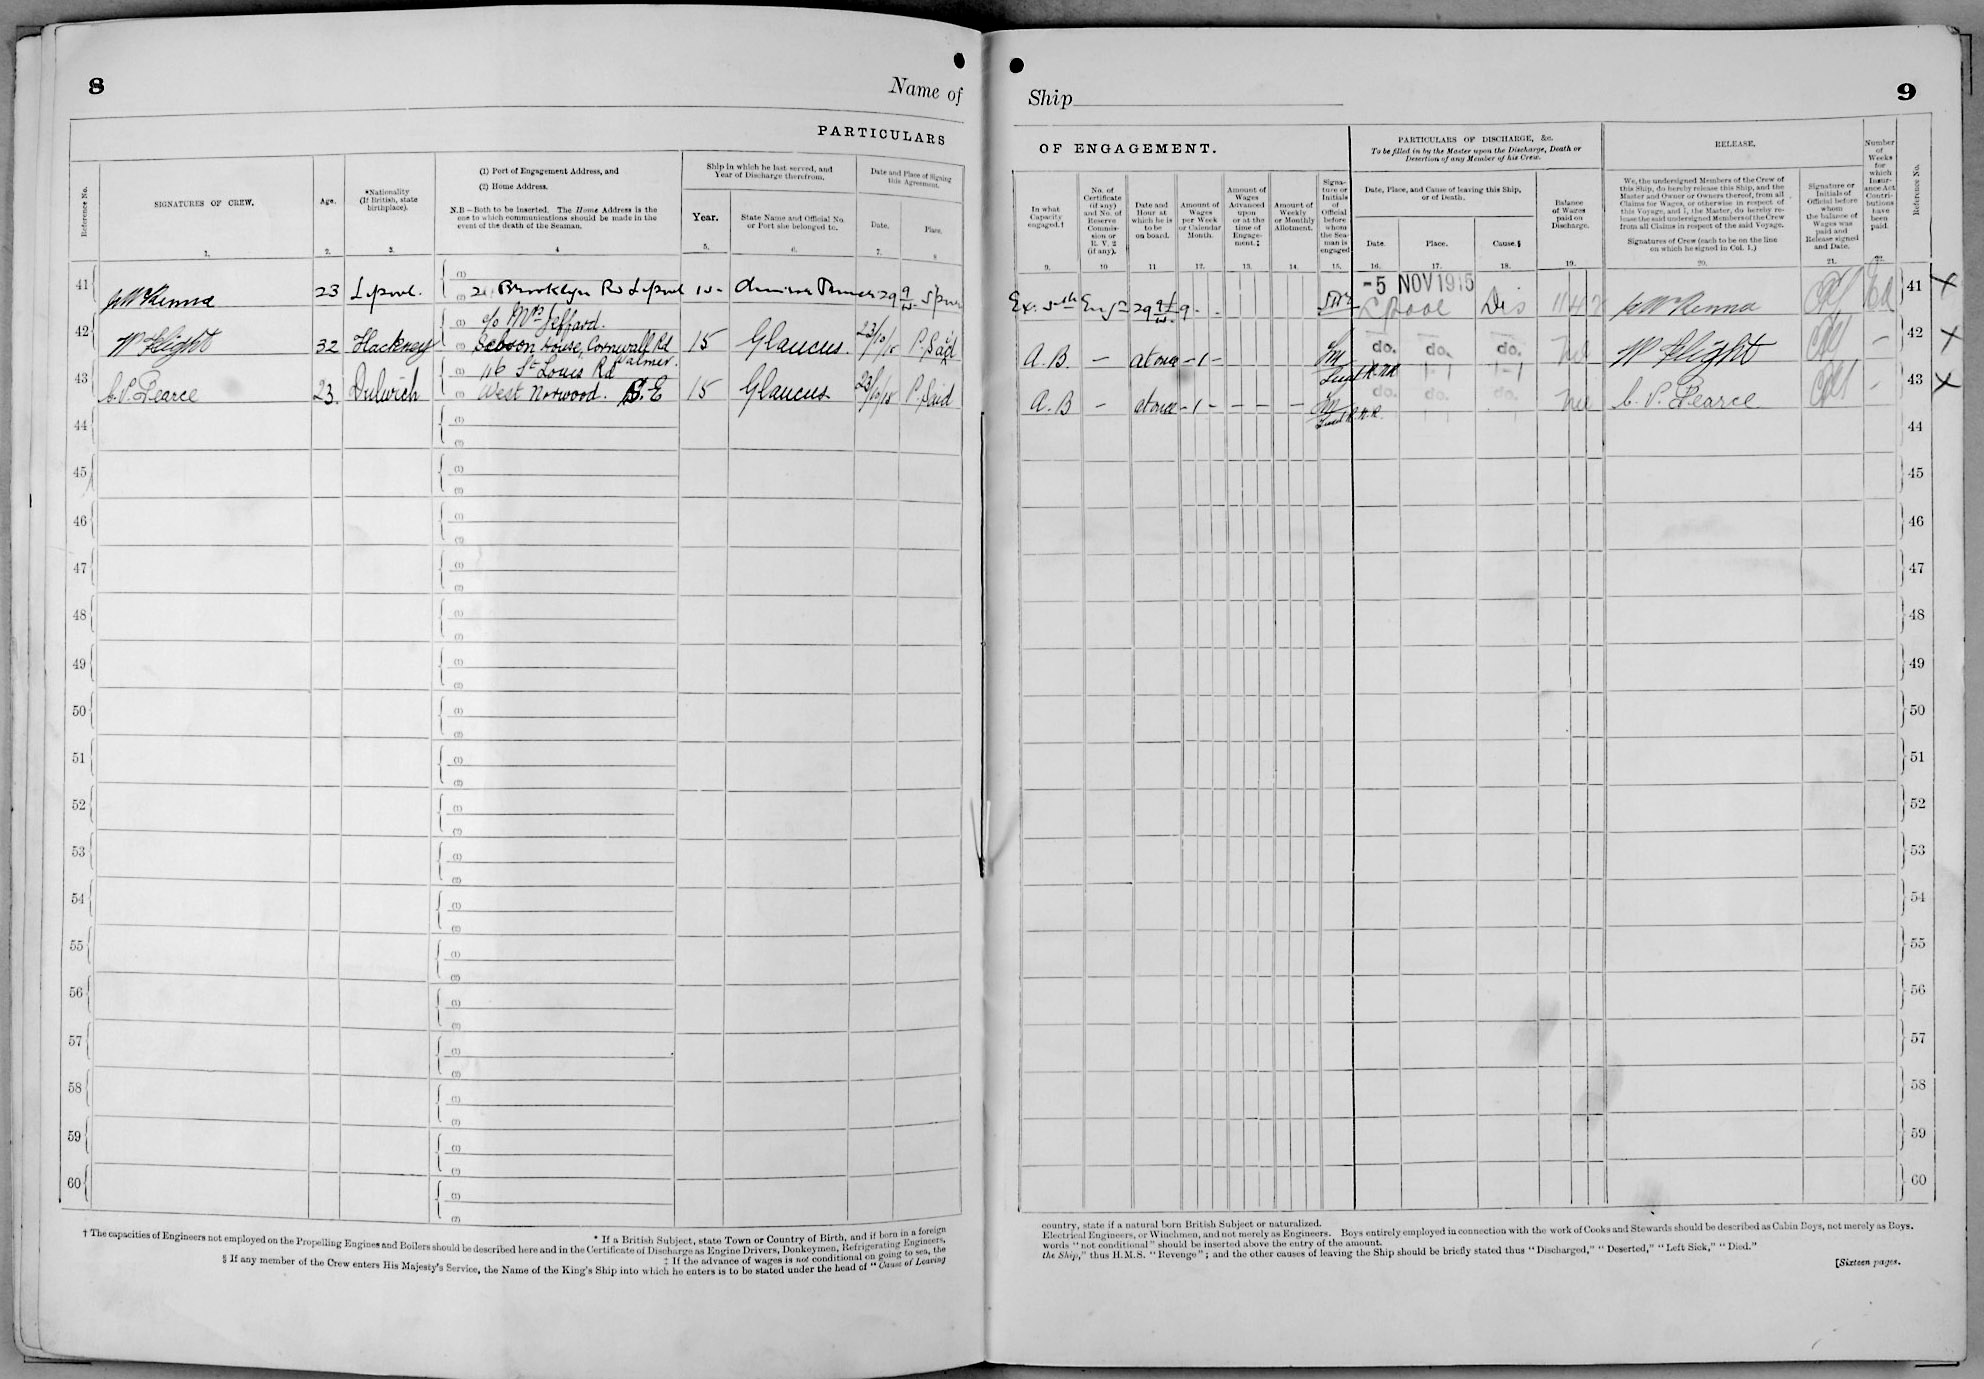 8
Name of
PARTICULARS
Reference No.
SIGNATURES OF CREW.
Age.
*Nationality
(If British, state
birthplace).
(1) Port of Engagement Address, and
(2) Home Address.
N.B.—Both to be inserted. The Home Address is the
one to which communications should be made in the
event of the death of the Seaman.
Ship in which he last served, and
Year of Discharge therefrom.
Year.
State Name and Official No.
or Port she belonged to.
Date and Place of Signing
this Agreement.
Date.
Place.
1.
2.
3.
4
5.
6.
7.
8
41
23
L'pool.
(1)
(2) 21 Brooklyn Rd L'pool
15
29 9/15
42
W Flight
32
Hackney
(1) c/o Mrs Jeffard.
(2) House, Cornwall Rd
Walmer.
15
Glaucus.
23/10/15
P. Said
43
C. P. Pearce
23.
Dulwich
(1) 16 St Louis Rd
(2) West Norwood. S.E
15
Glaucus
23/10/15
P. Said
44
45
46
47
48
49
50
51
52
53
54
55
56
57
58
59
60
* If a British Subject, state Town or Country of Birth, and if born in a foreign
† The capacities of Engineers not employed on the Propelling Engines and Boilers should be described here and in the Certificate of Discharge as Engine Drivers, Donkeymen, Refrigerating Engineers,
‡ If the advance of wages is not conditional on going to sea, the
§ If any member of the Crew enters His Majesty's Service, the Name of the King's Ship into which he enters is to be stated under the head of "Cause of Leaving
Ship
9
OF ENGAGEMENT.
PARTICULARS OF DISCHARGE, &c.
To be filled in by the Master upon the Discharge, Death or
Desertion of any Member of his Crew.
RELEASE.
Number
of
Weeks
for
which
Insur-
ance Act
Contri-
butions
have
been
paid.
Reference No.
In what
Capacity
engaged.†
No. of
Certificate
(if any)
and No. of
Reserve
Commis-
sion or
R. V. 2
(if any).
Date and
Hour at
which he is
to be
on board.
Amount of
Wages
per Week
or Calendar
Month.
Amount of
Wages
Advanced
upon
or at the
time of
Engage-
ment.‡
Amount of
Weekly
or Monthly
Allotment.
Signa-
ture or
Initials
of
Official
before
whom
the Sea-
man is
engaged
Date, Place, and Cause of leaving this Ship,
or of Death.
Date.
Place.
Cause.§
Balance
of Wages
paid on
Discharge.
We, the undersigned Members of the Crew of
this Ship, do hereby release this Ship, and the
Master and Owner or Owners thereof, from all
Claims for Wages, or otherwise in respect of
this Voyage, and I, the Master, do hereby re-
lease the said undersigned Members of the Crew
from all Claims in respect of the said Voyage.
Signatures of Crew (each to be on the line
on which he signed in Col. 1.)
Signature or
Initials of
Official before
whom
the balance of
Wages was
paid and
Release signed
and Date.
9.
10
11
12.
13.
14.
15.
16.
17.
18.
19.
20.
21.
22.
Ex. 5th Engr 29 9/15 9 - -
-5 NOV 1915
L'pool
Dis
41
X
A. B. — at once - 1 -
do.
do.
do.
Nil
W Flight
—
42
X
A. B — at once - 1 - — — —
Lieut R.N.R.
do.
do.
do.
Nil
C. P. Pearce
-
43
X
Lieut R.N.R.
44
45
46
47
48
49
50
51
52
53
54
55
56
57
58
59
60
country, state if a natural born British Subject or naturalized.
Electrical Engineers, or Winchmen, and not merely as Engineers. Boys entirely employed in connection with the work of Cooks and Stewards should be described as Cabin Boys, not merely as Boys.
words "not conditional" should be inserted above the entry of the amount.
the Ship," thus H.M.S. "Revenge"; and the other causes of leaving the Ship should be briefly stated thus "Discharged," "Deserted," "Left Sick," "Died."
[Sixteen pages.